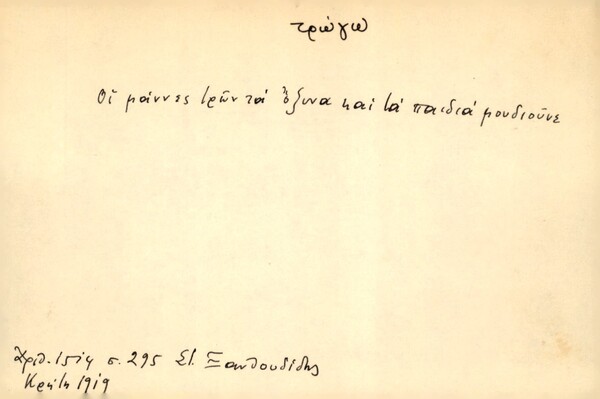 τρώγω
Οἱ μάννες τρῶν τά ὄξυνα καί τά παιδιά μουδιοῦνε
Ἀριθ. 1514 σ. 295 Στ. Ξανθουδίδης
Κρήτη 1919